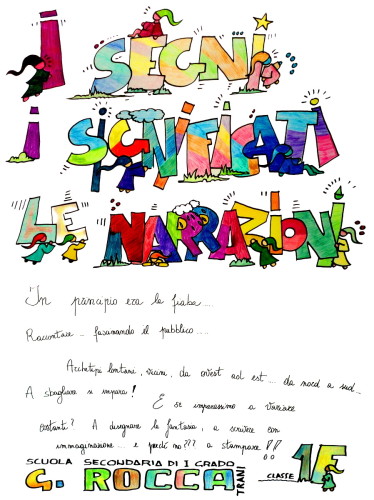 I SEGNI
i SIGNIFICATI
LE NARRAZIONI
In principio era la fiaba...
Raccontare... fascinando il pubblico....
Archetipi lontani, vicini, da ovest ad est... da nord a sud...
A sbagliare si impara! E se imparassimo a
costanti? A disegnare la fantasia, a scrivere con
immaginazione... e perché no??? a stampare!!
SCUOLA SECONDARIA DI I GRADO
G. ROCCA TRANI CLASSE 1F